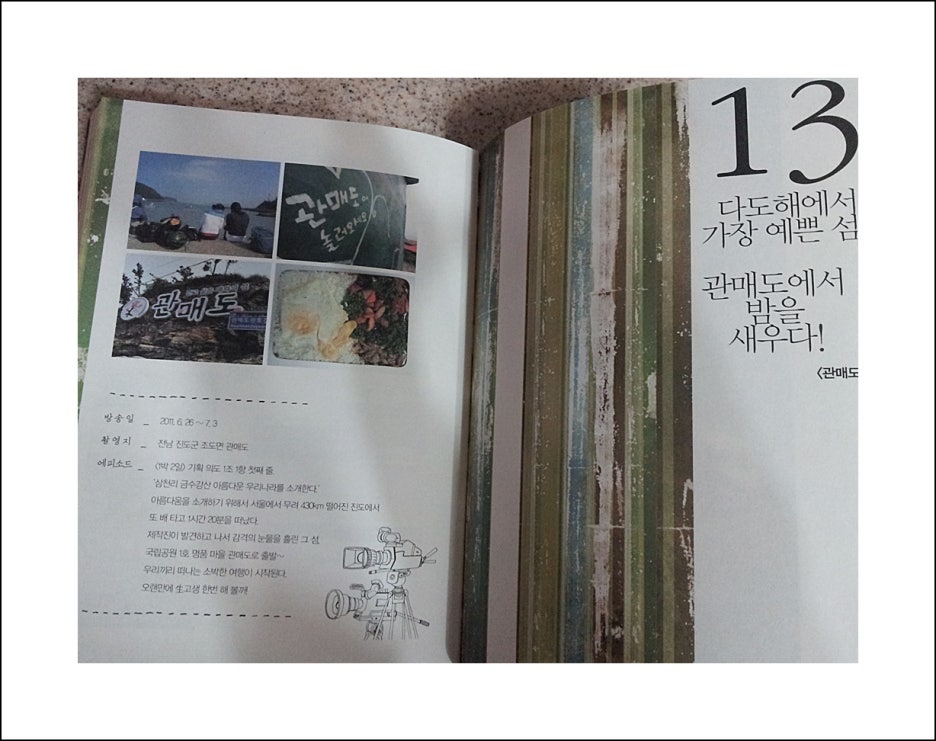 관매도에
놀러와서요
관매도
방송일 _ 2011. 6. 26 ~ 7. 3
촬영지 _ 전남 진도군 조도면 관매도
에피소드 _ 〈1박 2일〉 기획 의도 1조 1항 첫째 줄.
'삼천리 금수강산 아름다운 우리나라를 소개한다.'
아름다움을 소개하기 위해서 서울에서 무려 430km 떨어진 진도에서
또 배 타고 1시간 20분을 떠났다.
제작진이 발견하고 나서 감격의 눈물을 흘린 그 섬,
국립공원 1호 명품 마을 관매도로 출발~
우리끼리 떠나는 소박한 여행이 시작된다.
오랜만에 生고생 한번 해 볼까!
13
다도해에서
가장 예쁜 섬
관매도에서
밤을
새우다!
〈관매도